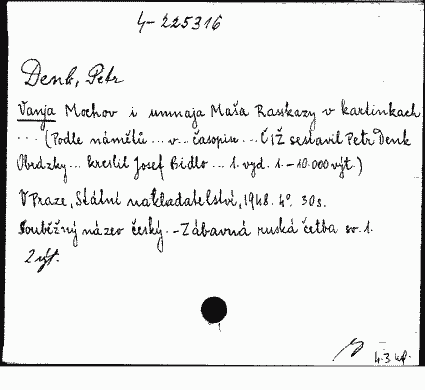 4-225316
Denk, Petr
Vanja Mochov i umnaja Maša Rasskazy v kartinkach
... (Podle námětů ... v ... časopise ... ČIŽ sestavil Petr Denk
Obrázky ... kreslil Josef Bidlo ... 1. vyd. 1.-10.000 výt.)
V Praze, Státní nakladatelství, 1948. 4°. 30 s.
Souběžný název český. - Zábavná ruská četba sv. 1.
2 výt.